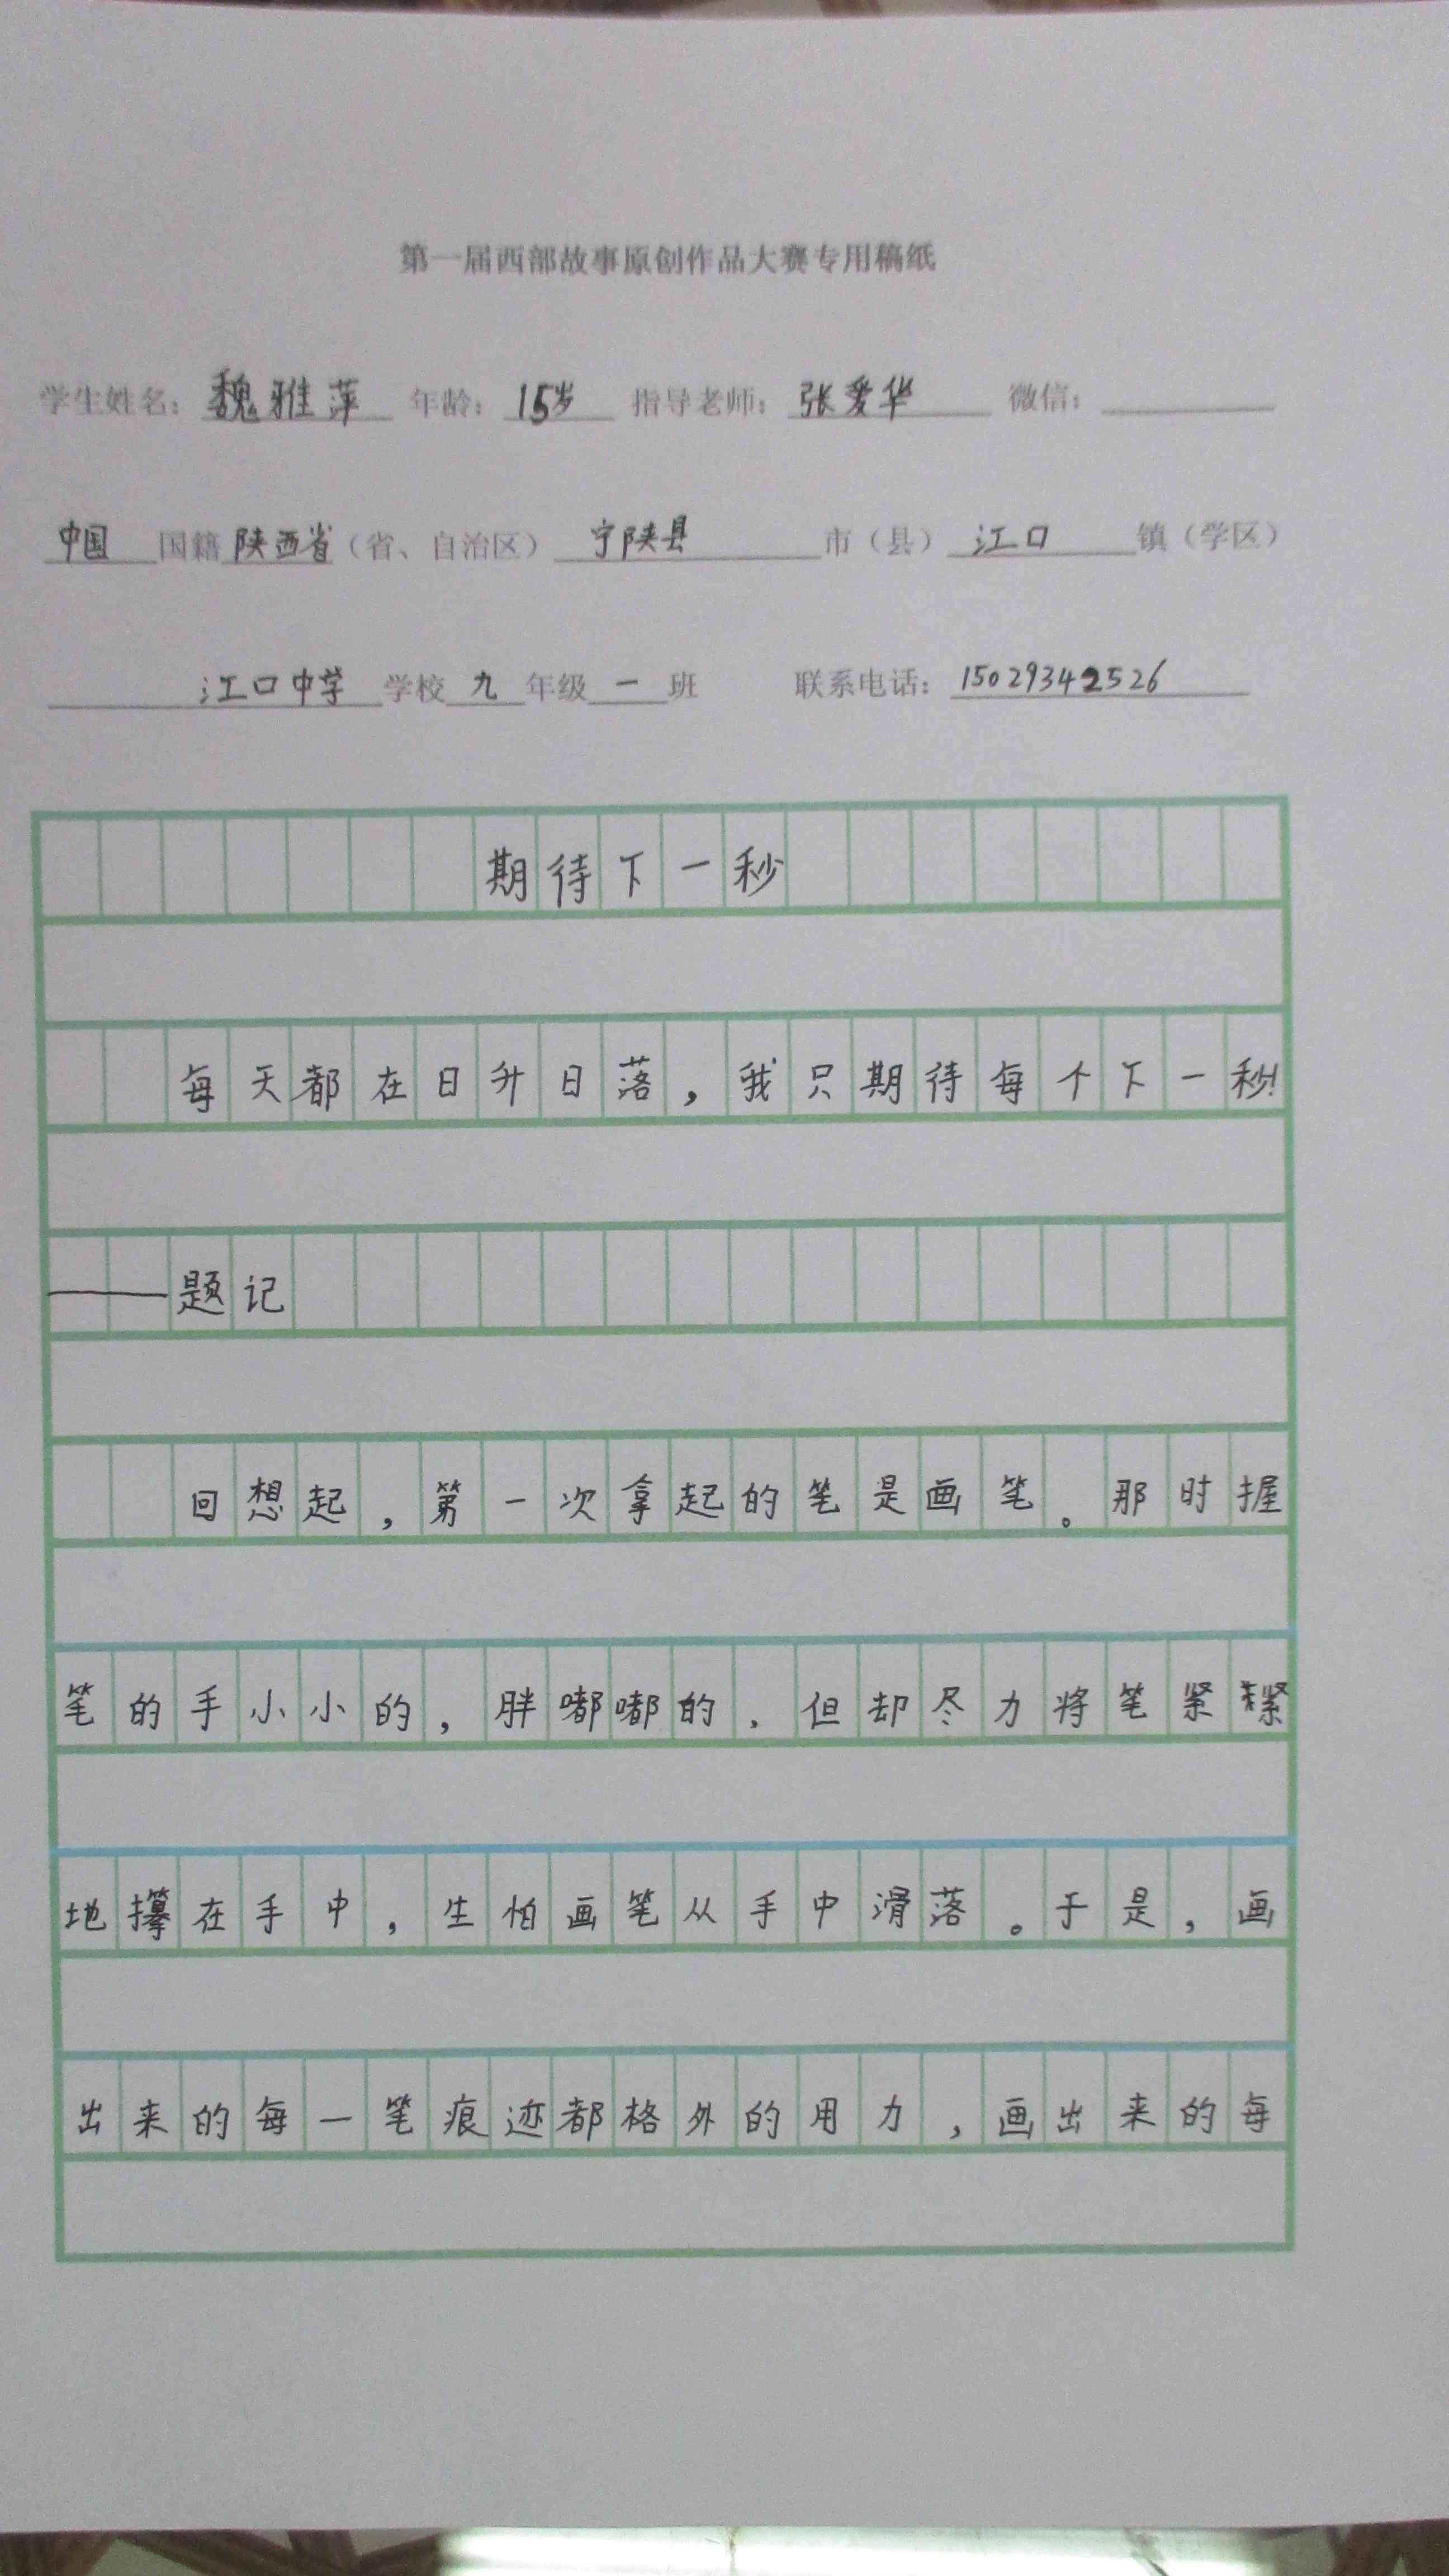 第一届西部故事原创作品大赛专用稿纸
学生姓名：魏雅萍 年龄：15岁 指导老师：张爱华 微信：
中国国籍陕西省（省、自治区）宁陕县市（县）江口镇（学区）
江口中学学校九年级一班 联系电话：15029342526
期待下一秒
每天都在日升日落，我只期待每个下一秒!
——题记
回想起，第一次拿起的笔是画笔。那时握
笔的手小小的，胖嘟嘟的，但却尽力将笔紧紧
地攥在手中，生怕画笔从手中滑落。于是，画
出来的每一笔痕迹都格外的用力，画出来的每